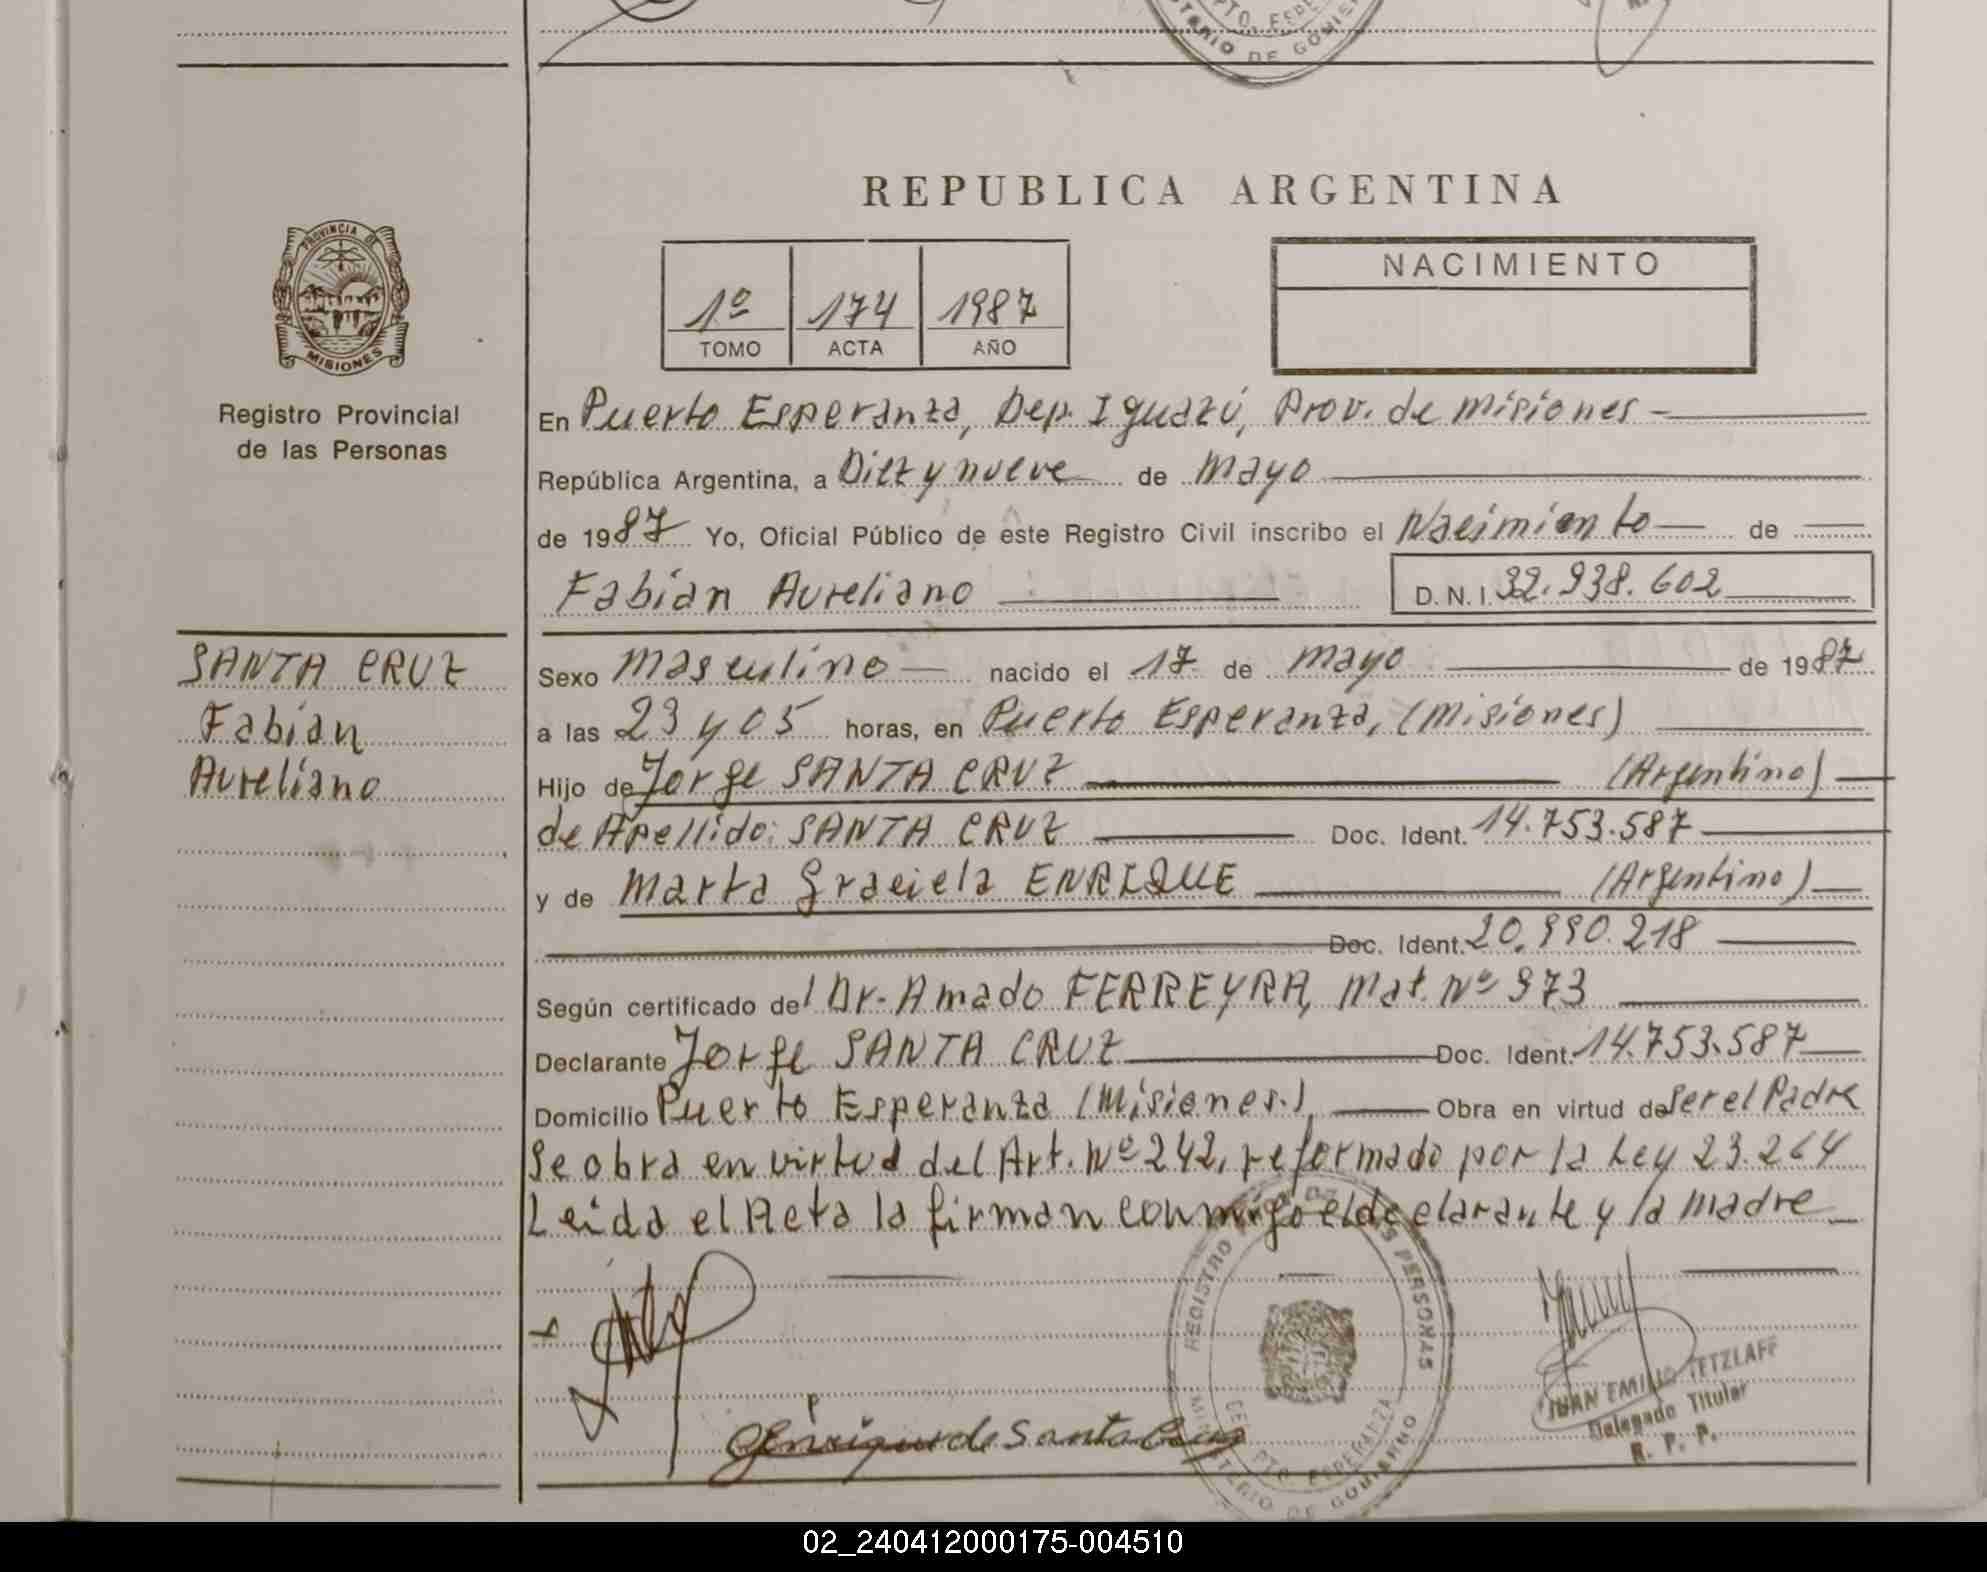 PTO. ESPE
DE GOBIE
REPUBLICA ARGENTINA
PROVINCIA DE
MISIONES
Registro Provincial
de las Personas
1º TOMO
174 ACTA
1987 AÑO
NACIMIENTO
En Puerto Esperanza, Dep. Iguazú, Prov. de Misiones -
República Argentina, a Diez y nueve de Mayo
de 1987 Yo, Oficial Público de este Registro Civil inscribo el Nacimiento de
Fabian Aureliano D. N. I. 32.938.602
SANTA CRUZ
Fabian
Aureliano
Sexo Masculino nacido el 17 de Mayo de 1987
a las 23 y 05 horas, en Puerto Esperanza, (Misiones)
Hijo de Jorge SANTA CRUZ (Argentino)
de Apellido: SANTA CRUZ Doc. Ident. 14.753.587
y de Marta Graciela ENRIQUE (Argentino)
Doc. Ident. 20.990.218
Según certificado del Dr. Amado FERREYRA, Mat. Nº 973
Declarante Jorge SANTA CRUZ Doc. Ident. 14.753.587
Domicilio Puerto Esperanza (Misiones.) Obra en virtud de ser el Padre
Se obra en virtud del Art. Nº 242, reformado por la Ley 23.264
Leida el Acta la firman conmigo el declarante y la madre
REGISTRO PERSONAS
PTO. ESPERANZA
MINISTERIO DE GOBIERNO
Enrique de Santa Cruz
JUAN EMILIO TETZLAFF
Delegado Titular
R. P. P.
02_240412000175-004510